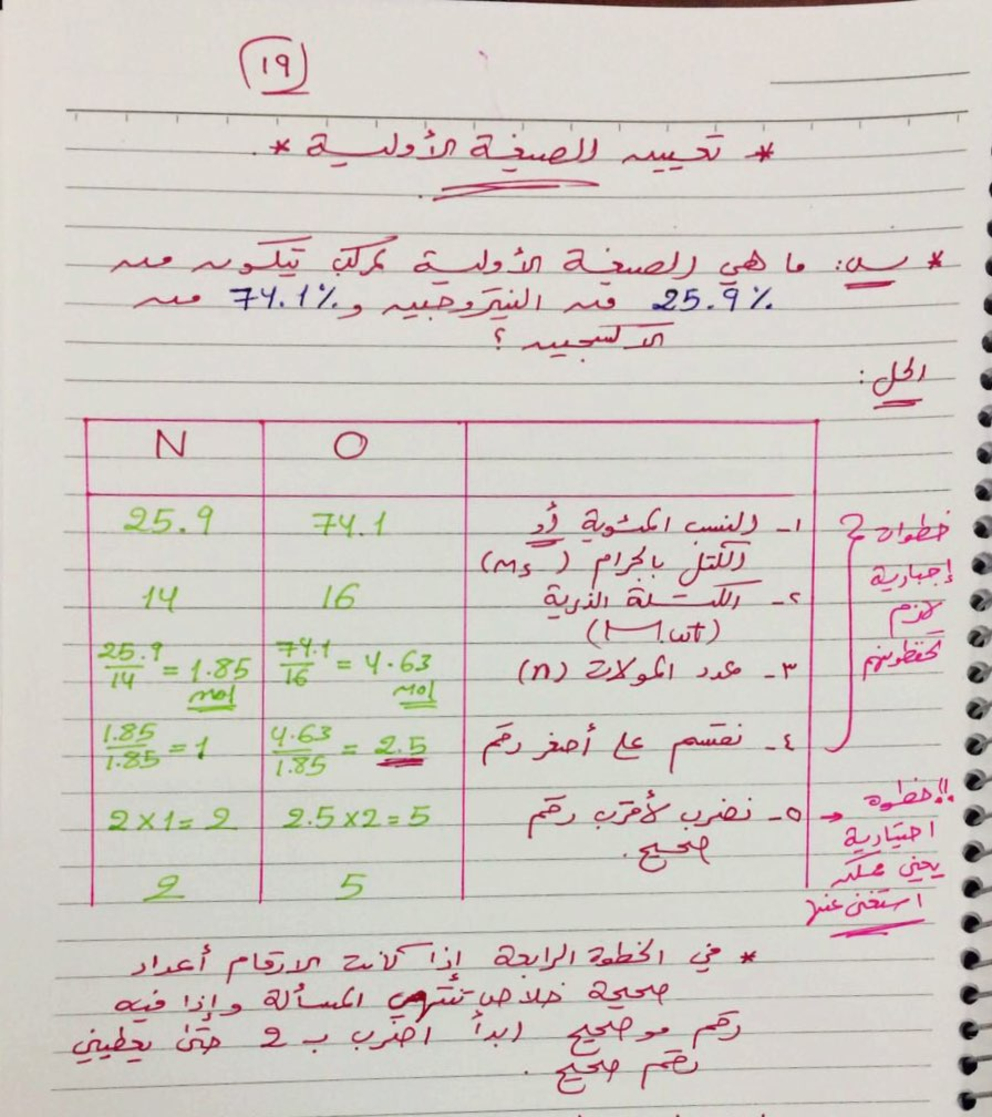 ١٩
* تعيين الصيغة الأولية *
* س: ما هي الصيغة الأولية لمركب يتكون من
25.9% من النيتروجين و 74.1% من
الاكسجين ؟
الحل :
N O
١- النسب المئوية أو 74.1 25.9
الكتل بالجرام (ms)
٢- الكتلة الذرية 16 14
(M.wt)
٣- عدد المولات (n) 74.1/16 = 4.63 mol 25.9/14 = 1.85 mol
٤- نقسم على أصغر رقم 4.63/1.85 = 2.5 1.85/1.85 = 1
٥- نضرب لأقرب رقم 2.5 x 2 = 5 2 x 1 = 2
صحيح .
5 2
خطوات
إجبارية
لازم
تحفظونهم
!! خطوة
اختيارية
يعني ممكن
استغنى عنها
* في الخطوة الرابعة إذا كانت الارقام أعداد
صحيحة خلاص تنتهي المسألة وإذا فيه
رقم مو صحيح ابدأ اضرب ب 2 حتى يعطيني
رقم صحيح .